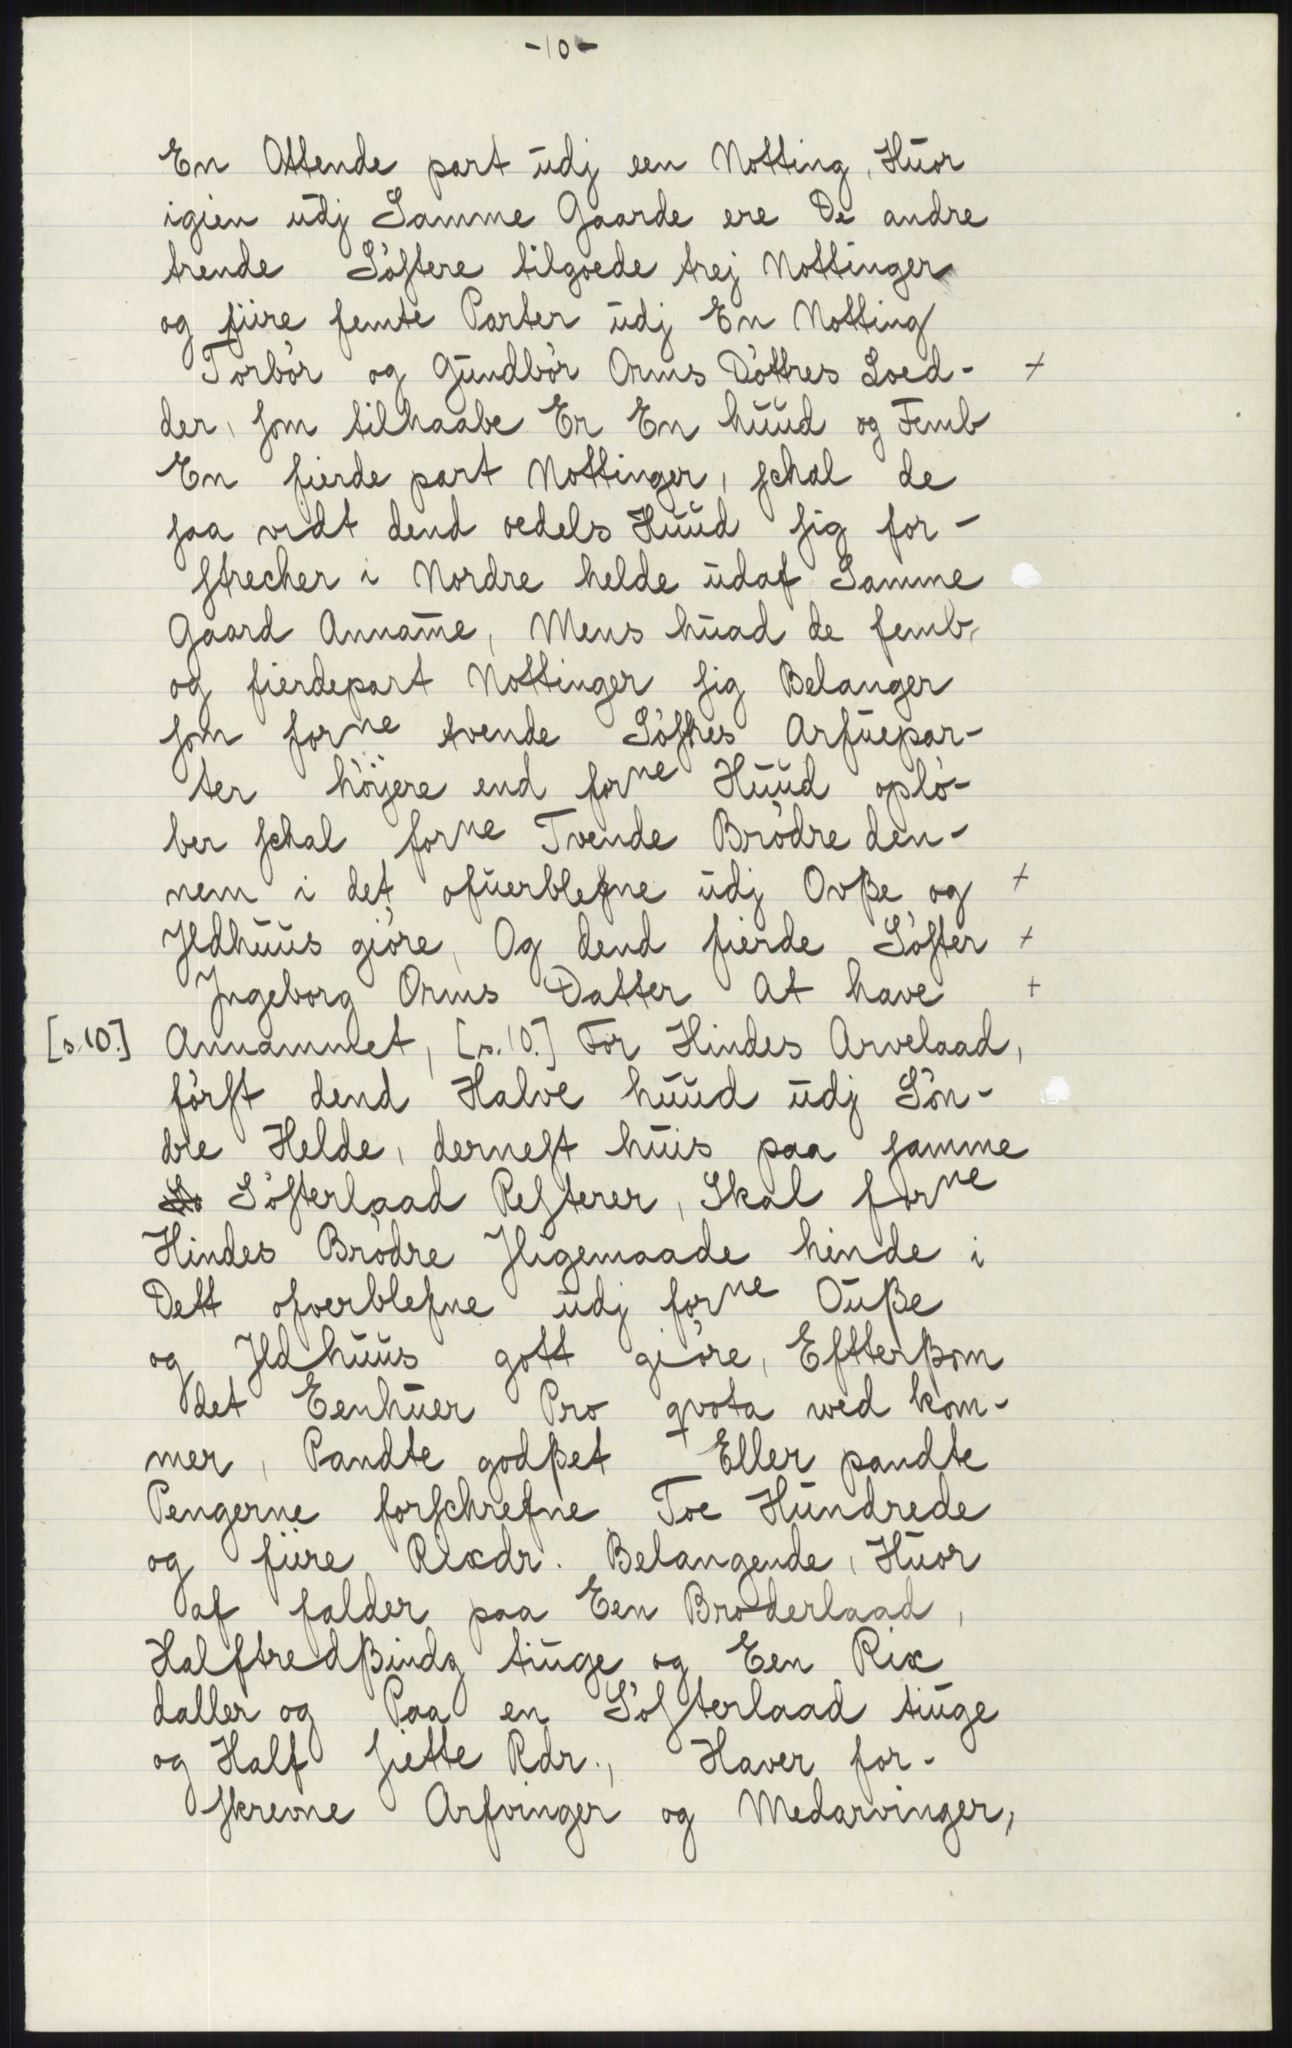 -10-
En Ottende part udj een Notting, Huor
igien udj Samme Gaarde ere De andre
trende Söstere tilgoede trej Nottinger
og fiire femte Parter udj En Notting
Torbör og Gundbör Orms Döttres Loed- +
der, som tilhaabe Er En huud og Femb
En fierde part Nottinger, schal de
saa vidt dend oedels Huud sig for-
strecher i Nordre helde udaf Samme
Gaard Anname, Mens huad de femb,
og fierdepart Nottinger sig Belanger
som forne tvende Söstres Arfuepar-
ter höyere end forne Huud oplö-
ber schal forne Tvende Brödre den-
nem i det ofuerblefne udj Ovße og +
Jldhuus giöre, Og dend fierde Söster +
Jngeborg Orms Datter At have +
[s.10.] Annammet, [s.10.] For Hindes Arvelaad,
först dend Halve huud udj Sön-
dre Helde, dernest huis paa samme
Sösterlaad Resterer, Skal forne
Hindes Brödre Jligemaade hinde i
Dett ofverblefne udj forne Ouße
og Jldhuus gott giöre, Efterßom
det Eenhuer Pro qvota wed kom-
mer, Pandte godßet Eller pandte
Pengerne forschrefne Toe Hundrede
og fiire Rixdr. Belangende, Huor
af falder paa Een Broderlaad,
Halftredßindz tiuge og Een Rix
daller og Paa en Sösterlaad tiuge
og Half siette Rdr., Haver for-
skrevne Arfvinger og Medarvinger,